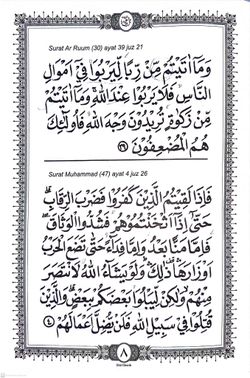 Surat Ar Ruum (30) ayat 39 juz 21
وَمَآ اٰتَيْتُمْ مِّنْ رِّبًا لِّيَرْبُوَا۠ فِيْٓ اَمْوَالِ
النَّاسِ فَلَا يَرْبُوْا عِنْدَ اللّٰهِ ۚوَمَآ اٰتَيْتُمْ
مِّنْ زَكٰوةٍ تُرِيْدُوْنَ وَجْهَ اللّٰهِ فَاُولٰۤىِٕكَ
هُمُ الْمُضْعِفُوْنَ ٣٩
Surat Muhammad (47) ayat 4 juz 26
فَاِذَا لَقِيْتُمُ الَّذِيْنَ كَفَرُوْا فَضَرْبَ الرِّقَابِۗ
حَتّٰٓى اِذَآ اَثْخَنْتُمُوْهُمْ فَشُدُّوا الْوَثَاقَۖ
فَاِمَّا مَنًّاۢ بَعْدُ وَاِمَّا فِدَاۤءً حَتّٰى تَضَعَ الْحَرْبُ
اَوْزَارَهَا ۛ ذٰلِكَ ۛ وَلَوْ يَشَاۤءُ اللّٰهُ لَانْتَصَرَ
مِنْهُمْ وَلٰكِنْ لِّيَبْلُوَا۟ بَعْضَكُمْ بِبَعْضٍۗ وَالَّذِيْنَ
قُتِلُوْا فِيْ سَبِيْلِ اللّٰهِ فَلَنْ يُّضِلَّ اَعْمَالَهُمْ ٤
٨